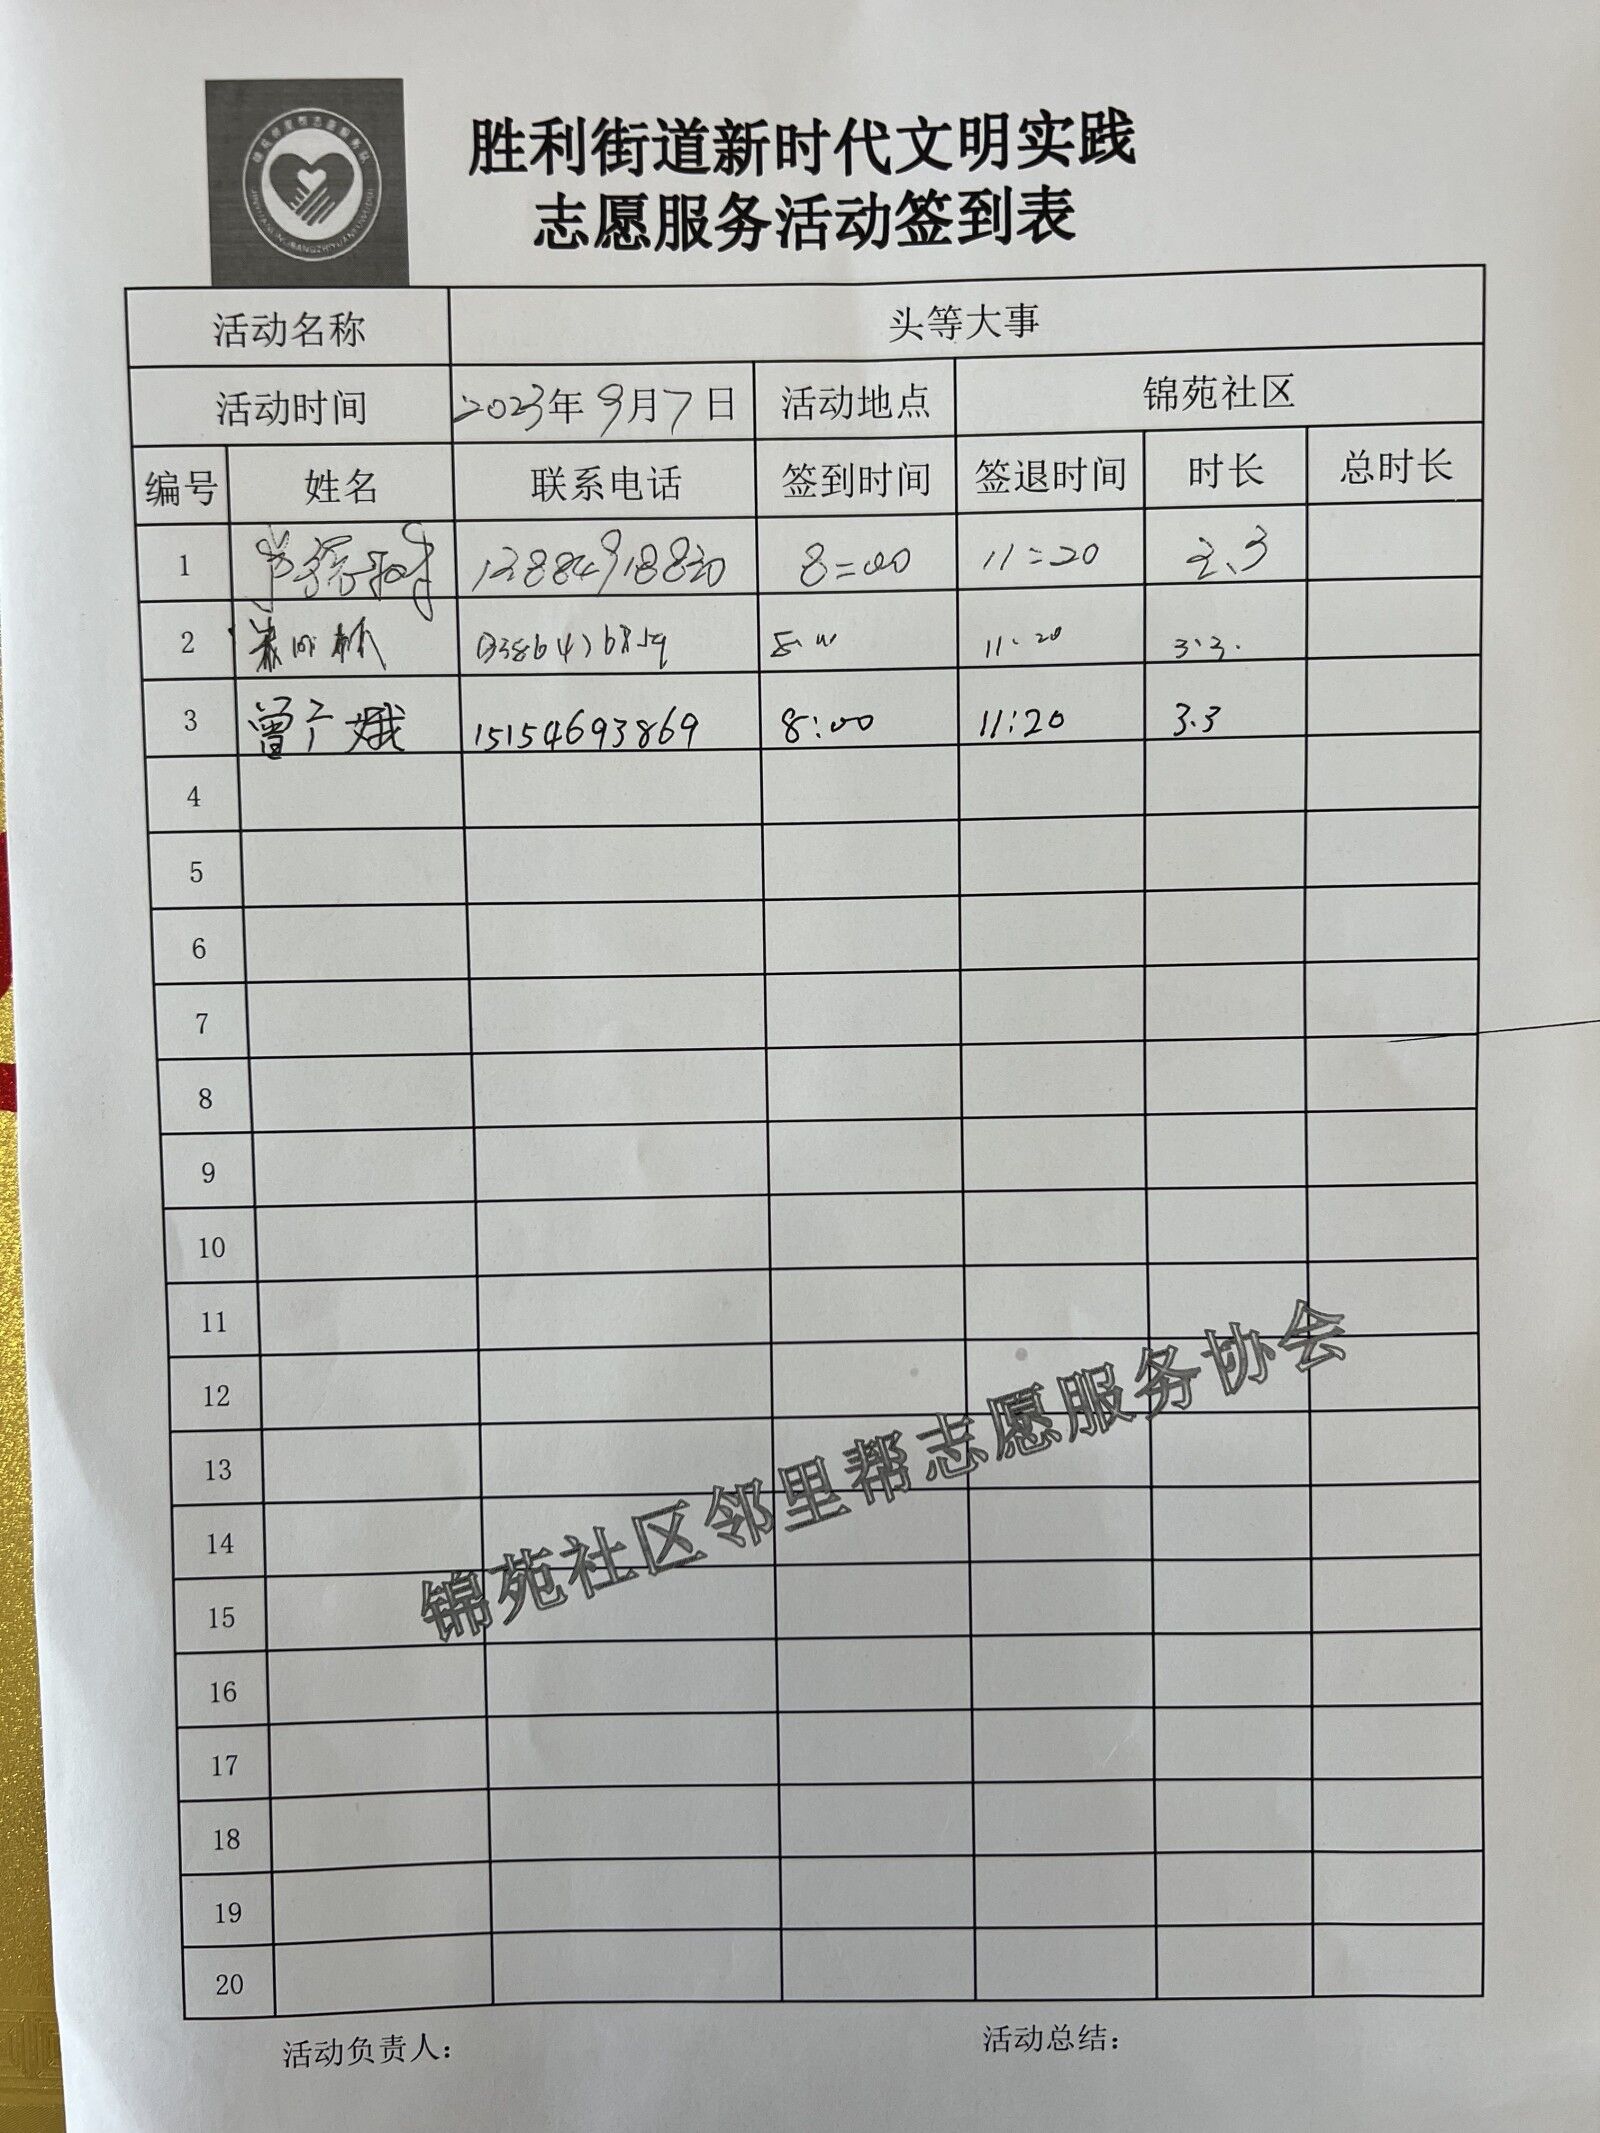 胜利街道新时代文明实践
志愿服务活动签到表
活动名称 头等大事
活动时间 2023年9月7日 活动地点 锦苑社区
编号 姓名 联系电话 签到时间 签退时间 时长 总时长
1 8:00 11:20 3.3
2 11:20 3.3.
3 曾广娥 15154693869 8:00 11:20 3.3
4
5
6
7
8
9
10
11
12
13
14
15
16
17
18
19
20
锦苑社区邻里帮志愿服务协会
活动负责人： 活动总结：